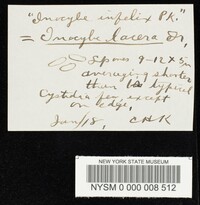 "Inocybe infelix Pk."
= Inocybe lacera Fr,
Spores 9-12 x 5µ
averaging shorter
than is typical
Cystidia few except
on edge,
Jan/18, CHK
NEW YORK STATE MUSEUM
NYSM 0 000 008 512